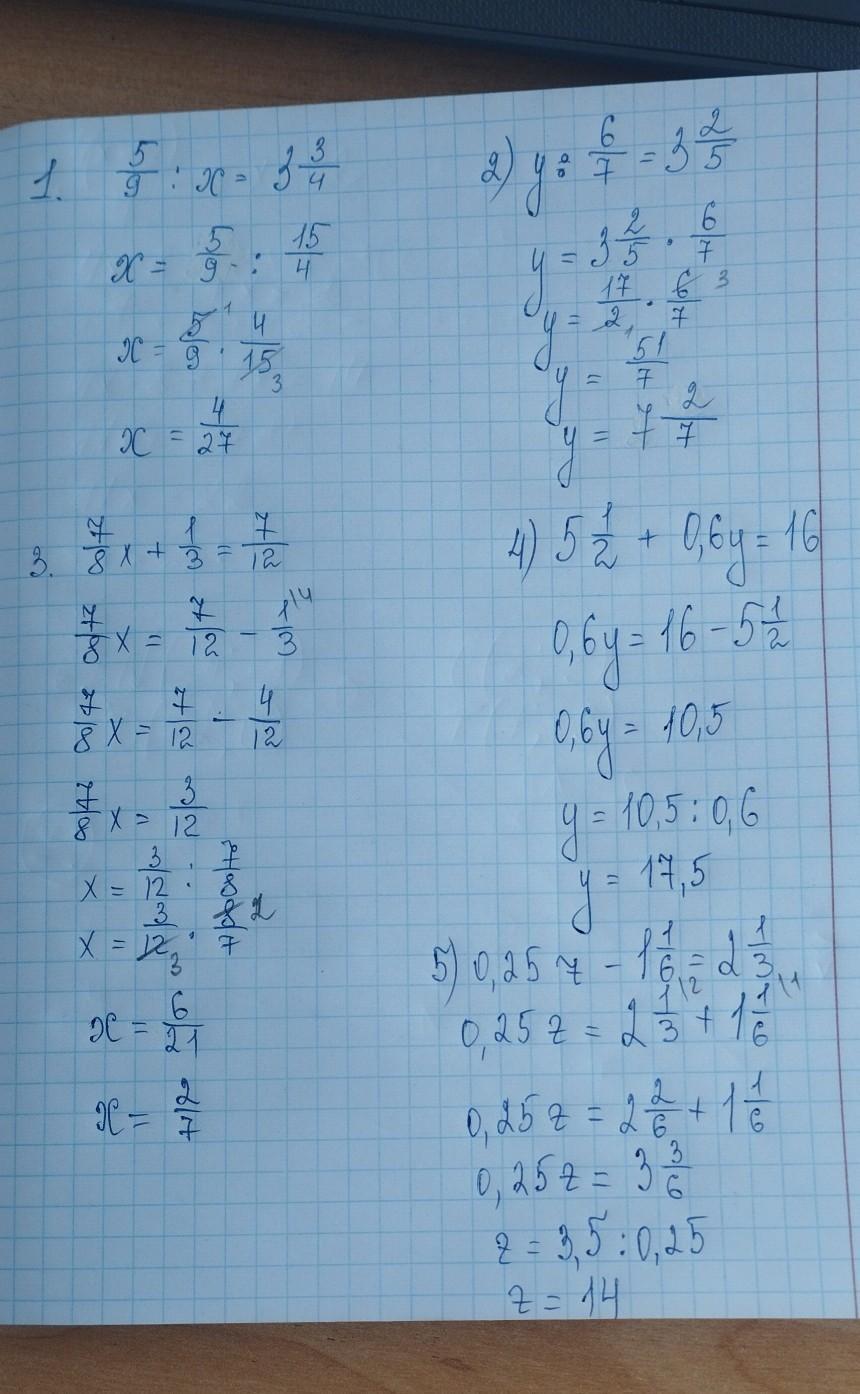 1. 5/9 : x = 3 3/4
x = 5/9 : 15/4
x = 5/9 1 · 4/15 3
x = 4/27
2) y : 6/7 = 3 2/5
y = 3 2/5 · 6/7
y = 17/2 1 · 6/7 3
y = 51/7
y = 7 2/7
3. 7/8 x + 1/3 = 7/12
7/8 x = 7/12 - 1/3 \4
7/8 x = 7/12 - 4/12
7/8 x = 3/12
x = 3/12 : 7/8
x = 3/12 3 · 8/7 2
x = 6/21
x = 2/7
4) 5 1/2 + 0,6y = 16
0,6y = 16 - 5 1/2
0,6y = 10,5
y = 10,5 : 0,6
y = 17,5
5) 0,25 z - 1 1/6 = 2 1/3
0,25 z = 2 1/3 \2 + 1 1/6 \1
0,25 z = 2 2/6 + 1 1/6
0,25 z = 3 3/6
z = 3,5 : 0,25
z = 14